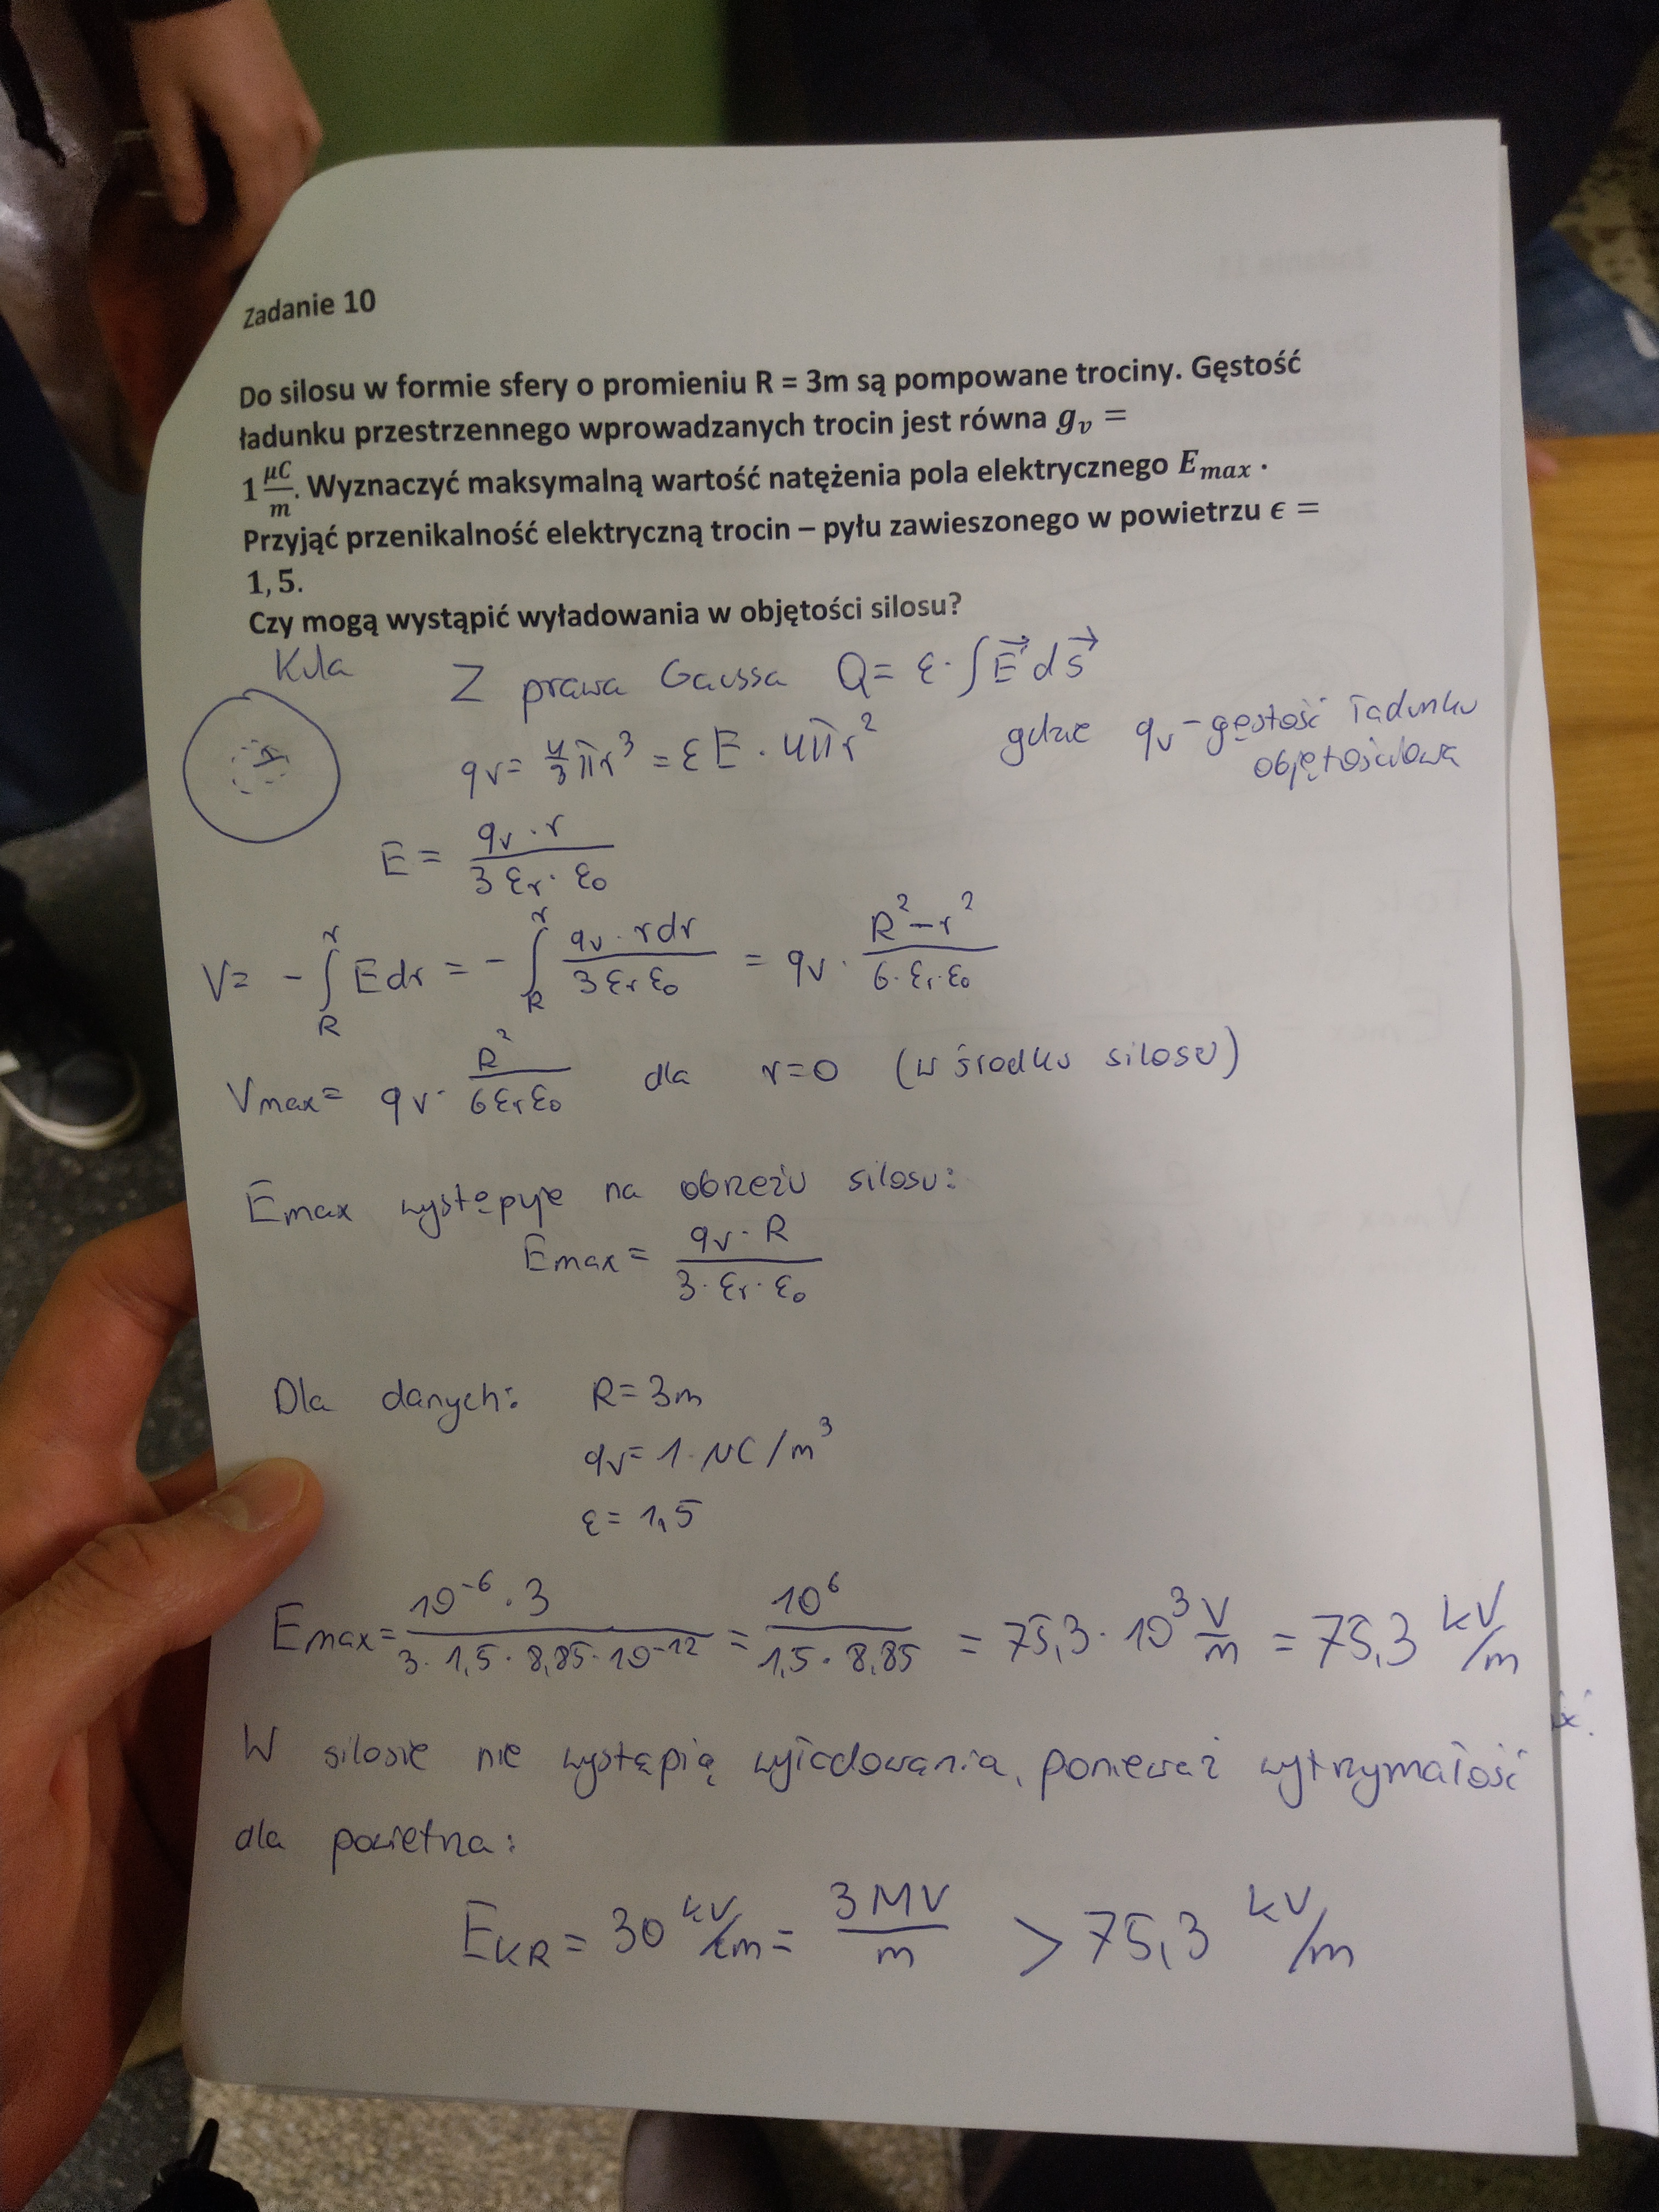 Zadanie 10
Do silosu w formie sfery o promieniu R = 3m są pompowane trociny. Gęstość
ładunku przestrzennego wprowadzanych trocin jest równa g_v =
1 μC/m. Wyznaczyć maksymalną wartość natężenia pola elektrycznego E_max.
Przyjąć przenikalność elektryczną trocin – pyłu zawieszonego w powietrzu ϵ =
1,5.
Czy mogą wystąpić wyładowania w objętości silosu?
Kula Z prawa Gaussa Q = ε·∫E⃗ds⃗
qv = 4/3 πr³ = εE · 4πr² gdzie qv - gęstość ładunku
objętościowa
r
E = qv·r / 3εr·ε0
V = -∫_R^r Edr = -∫_R^r qv·rdr / 3εrε0 = qv · R²-r² / 6·εr·ε0
Vmax = qv · R² / 6εrε0 dla r=0 (w środku silosu)
Emax występuje na obrzeżu silosu:
Emax = qv·R / 3·εr·ε0
Dla danych: R=3m
qv = 1·μC/m³
ε = 1,5
Emax = 10⁻⁶·3 / 3·1,5·8,85·10⁻¹² = 10⁶ / 1,5·8,85 = 75,3·10³ V/m = 75,3 kV/m
W silosie nie wystąpią wyładowania, ponieważ wytrzymałość
dla powietrza:
EKR = 30 kV/cm = 3MV/m > 75,3 kV/m